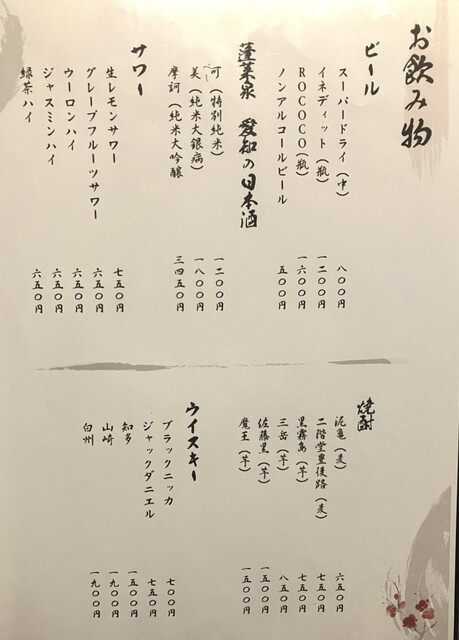 お飲み物
ビール
スーパードライ（中）　八〇〇円
イネディット（瓶）　一二〇〇円
ROCOCO（瓶）　一六〇〇円
ノンアルコールビール　五〇〇円
蓬莱泉　愛知の日本酒
可（特別純米）　一二〇〇円
美（純米大銀病）　一八〇〇円
摩訶（純米大吟醸　三四五〇円
サワー
生レモンサワー　七五〇円
グレープフルーツサワー　六五〇円
ウーロンハイ　六五〇円
ジャスミンハイ　六五〇円
緑茶ハイ　六五〇円
焼酎
泥亀（麦）　六五〇円
二階堂豊後路（麦）　七五〇円
黒霧島（芋）　七五〇円
三岳（芋）　八五〇円
佐藤黒（芋）　一五〇〇円
魔王（芋）　一五〇〇円
ウイスキー
ブラックニッカ　七〇〇円
ジャックダニエル　七五〇円
知多　一五〇〇円
山崎　一九〇〇円
白州　一九〇〇円